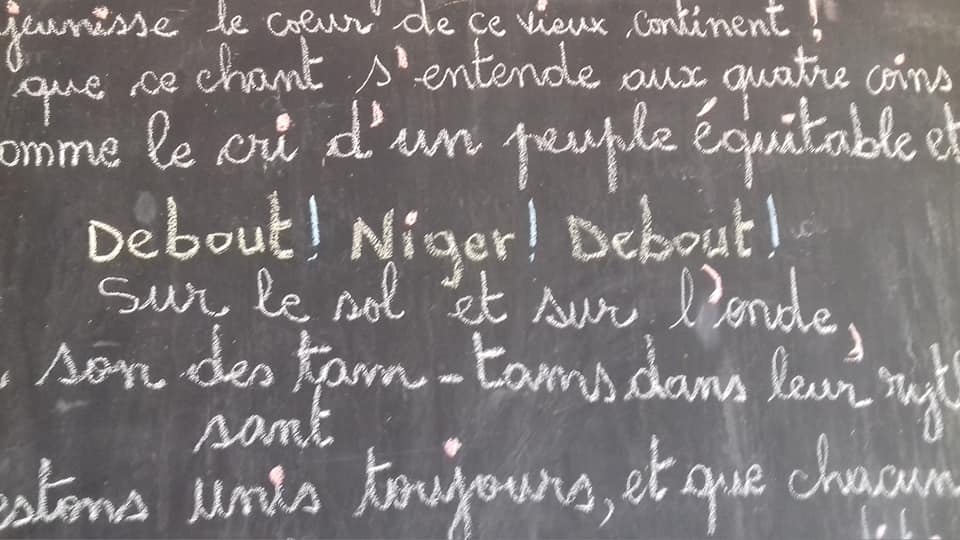 jeunisse le coeur de ce vieux continent !
que ce chant s'entende aux quatre coins
omme le cri d'un peuple équitable et
Debout ! Niger ! Debout !
Sur le sol et sur l'onde,
son des tam-tams dans leur ryt
sant
estons unis toujours, et que chacun